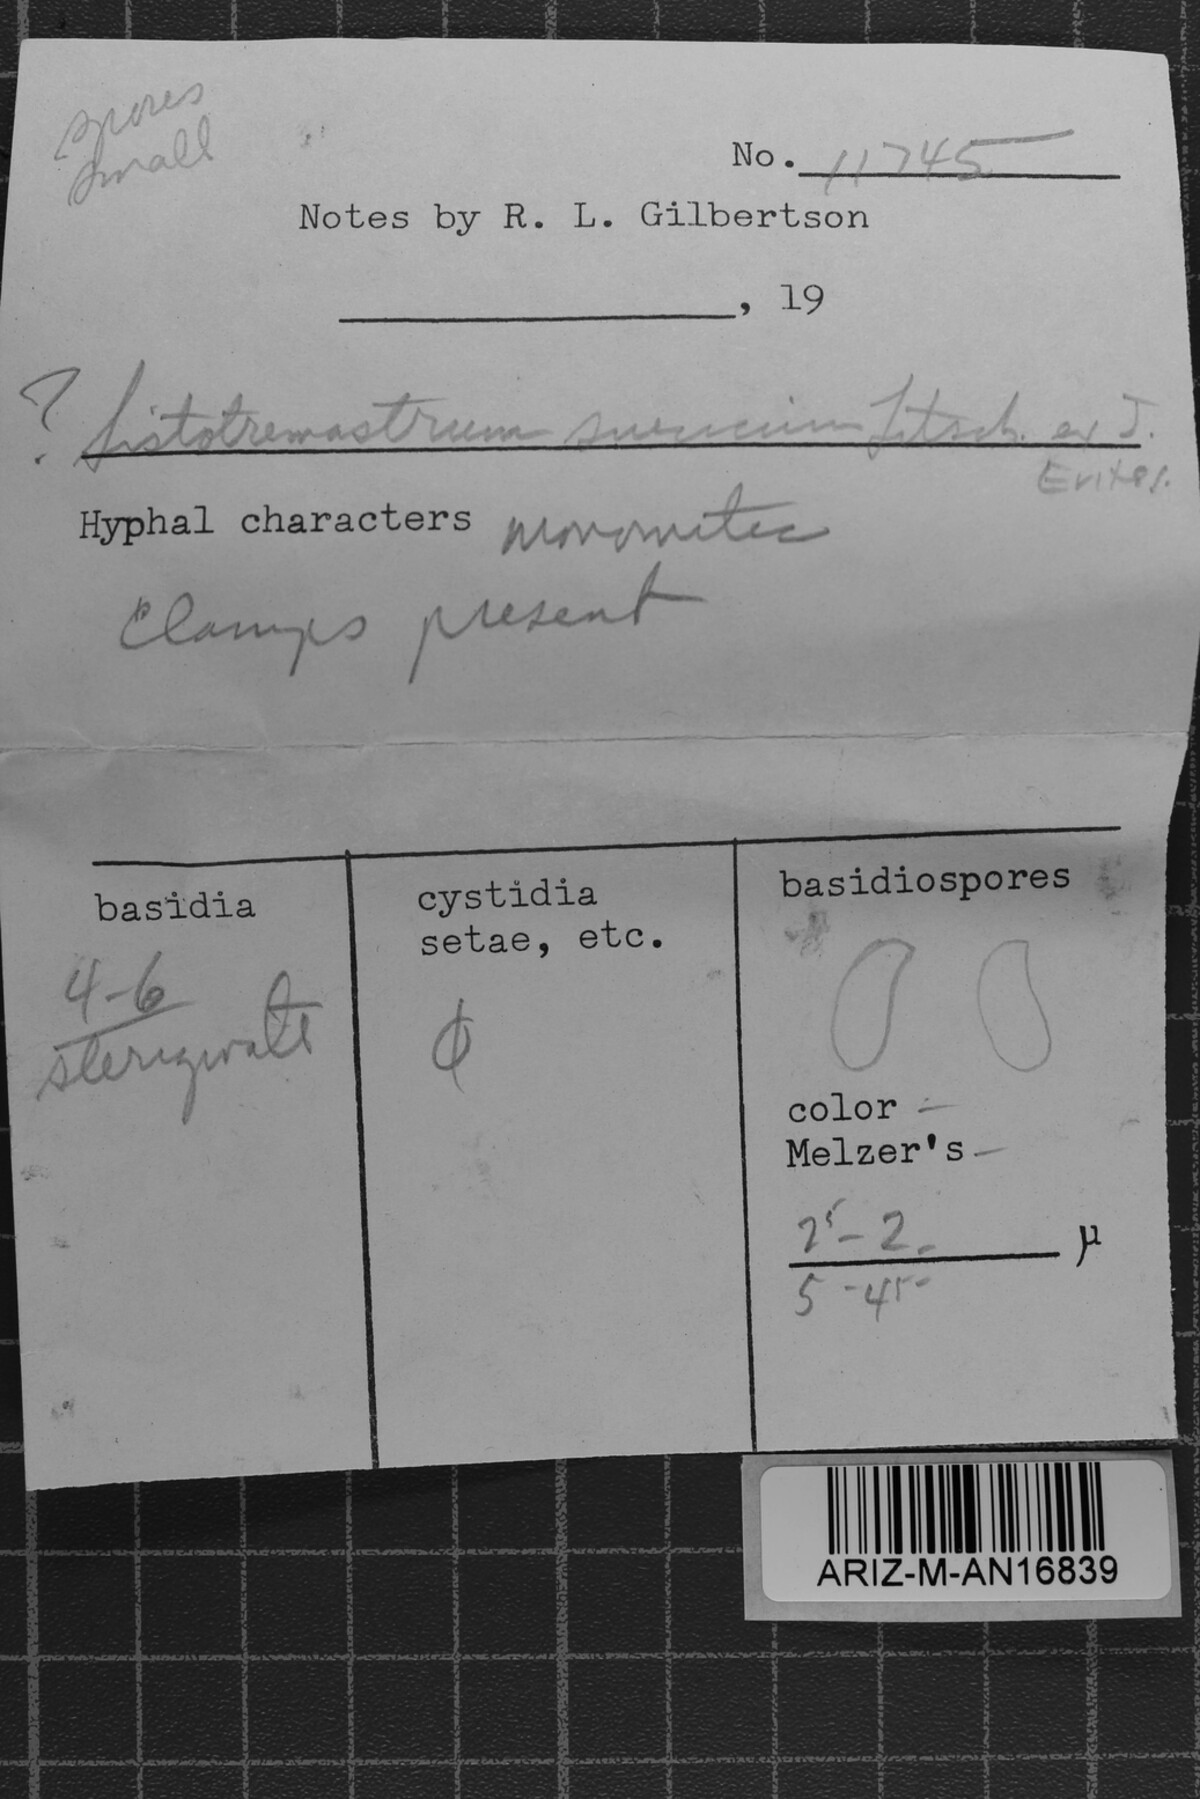 spores
small
No. 11745
Notes by R. L. Gilbertson
, 19
? Sistotremastrum suecicum Litsch. ex J.
Erikss.
Hyphal characters monomitic
Clamps present
basidia
4-6
sterigmate
cystidia
setae, etc.
ϕ
basidiospores
color –
Melzer's –
2 – 2 µ
5 - 4
ARIZ-M-AN16839